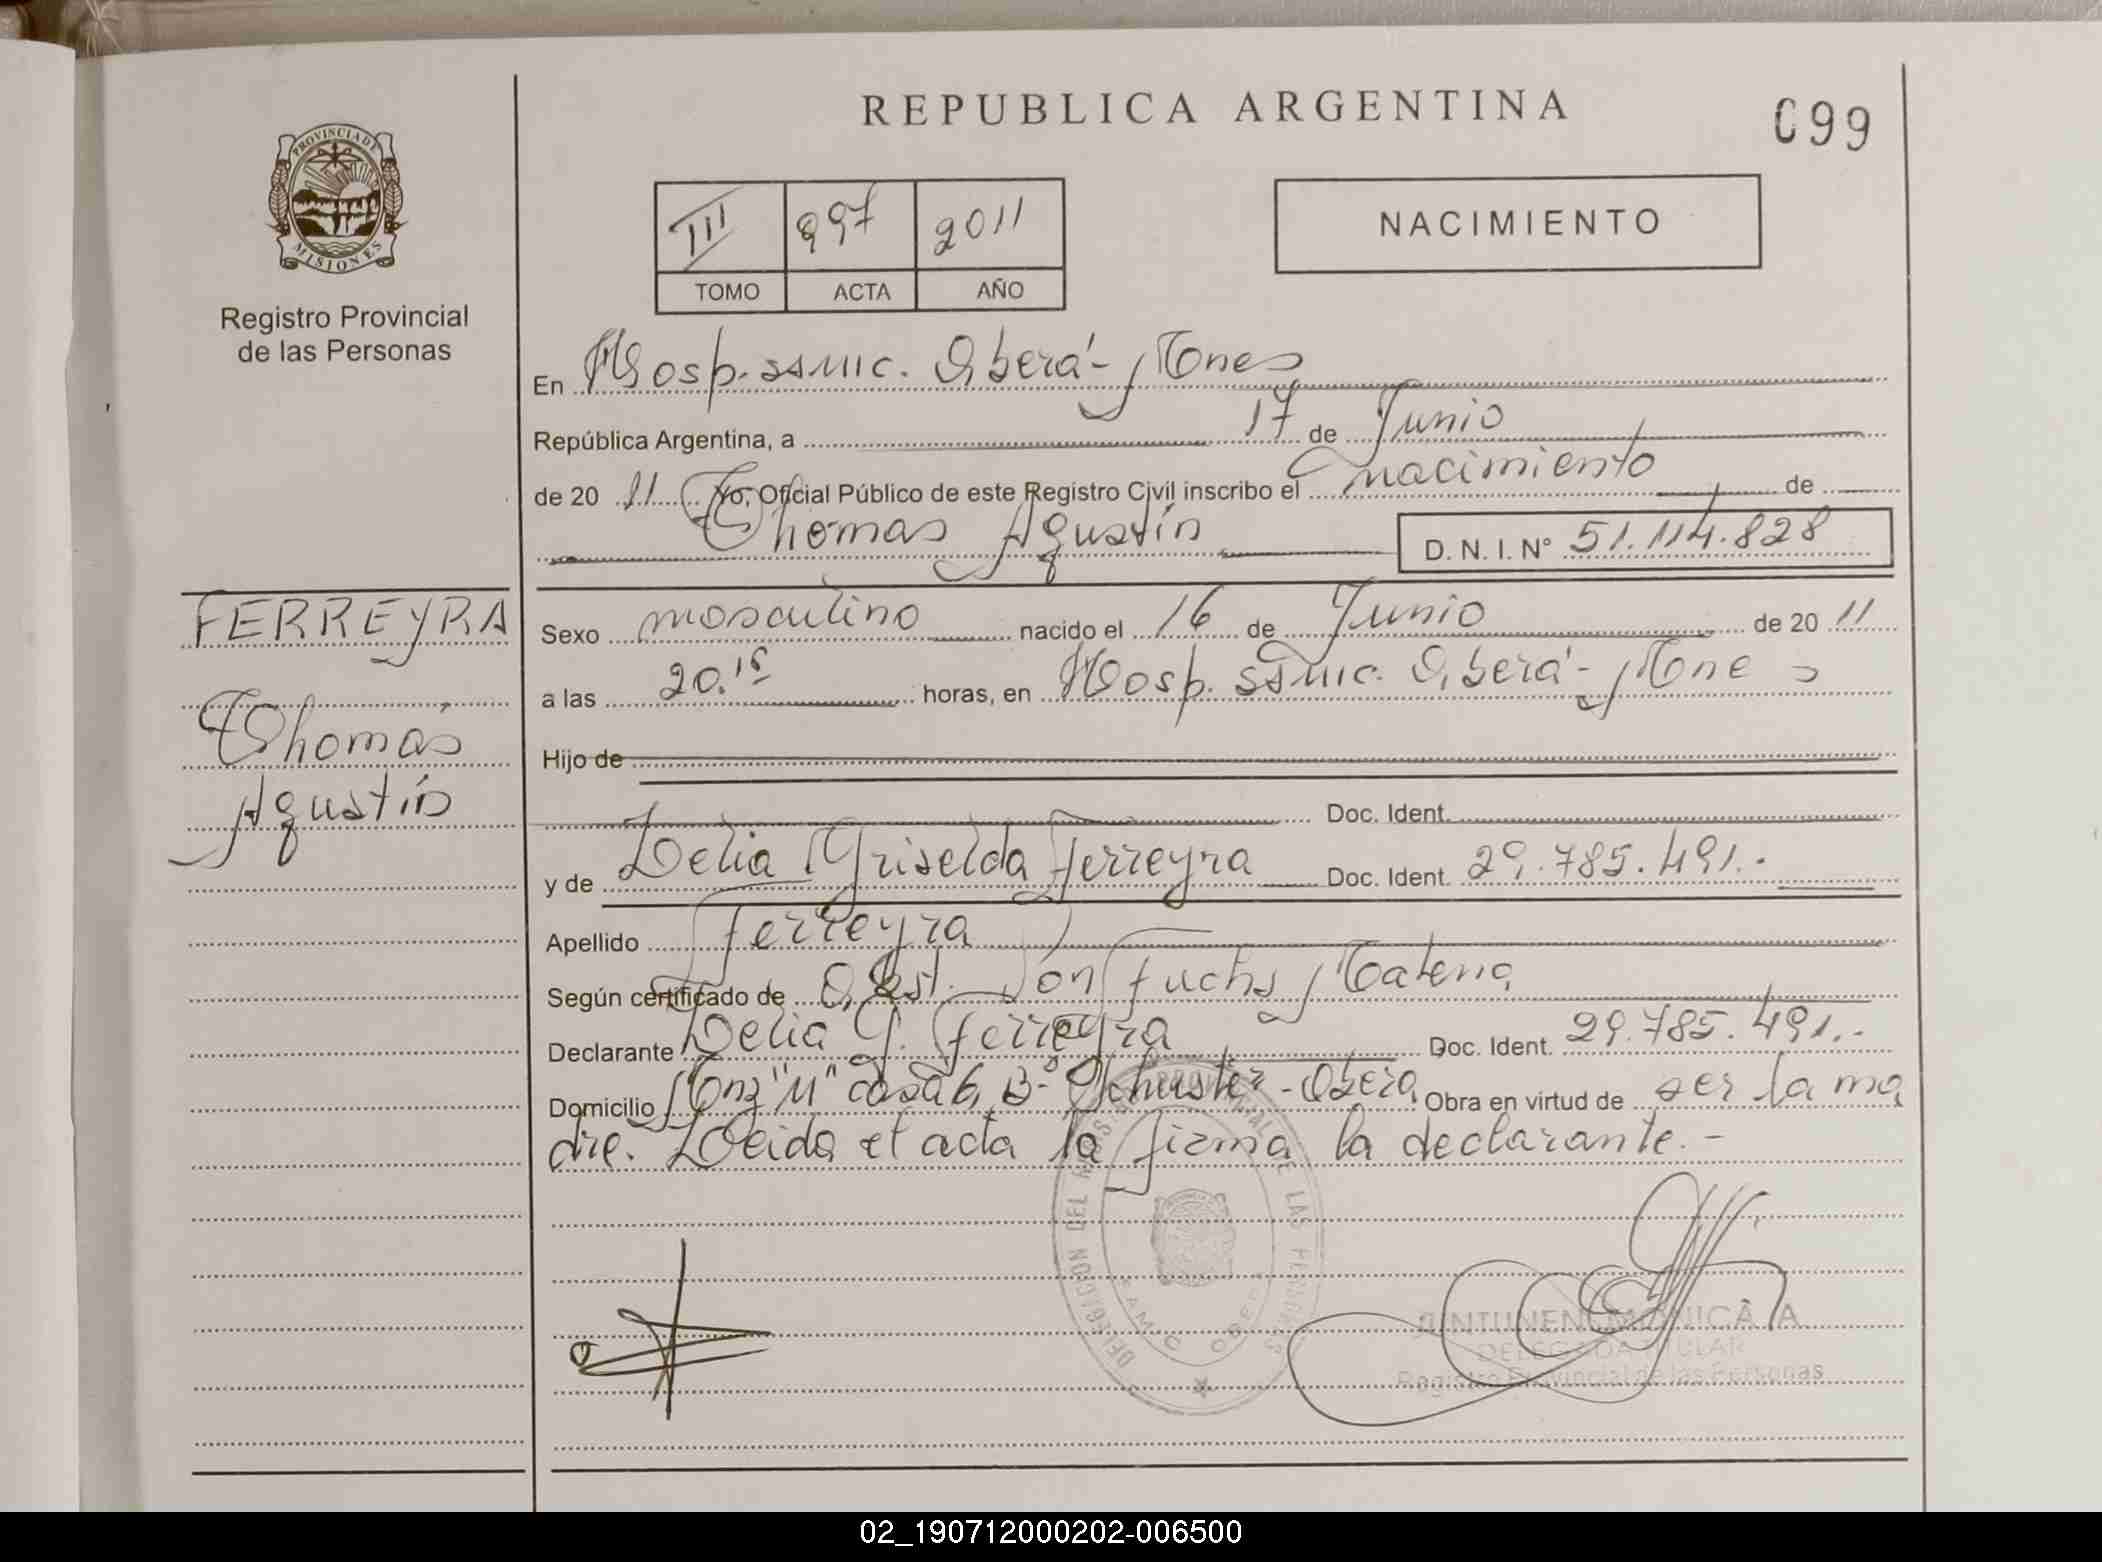 REPUBLICA ARGENTINA
099
PROVINCIA DE
MISIONES
Registro Provincial
de las Personas
III 997 2011
TOMO ACTA AÑO
NACIMIENTO
En Hosp. SSMIC. Oberá - Mnes
República Argentina, a 17 de Junio
de 20 11 Yo, Oficial Público de este Registro Civil inscribo el nacimiento de
Thomas Agustín D. N. I. N° 51.114.828
FERREYRA
Thomás
Agustín
Sexo masculino nacido el 16 de Junio de 20 11
a las 20.15 horas, en Hosp. SSMIC. Oberá - Mnes
Hijo de
Doc. Ident.
y de Delia Griselda Ferreyra Doc. Ident. 29.785.491.-
Apellido Ferreyra
Según certificado de Obst. Fuchs Malena
Declarante Delia G. Ferreyra Doc. Ident. 29.785.491.-
Domicilio Mnz "M" casa 6, B° Schuster - Oberá Obra en virtud de ser la ma
dre. Leida el acta la firma la declarante.-
DELEGACION DEL REGISTRO PROVINCIAL DE LAS PERSONAS
MONICA A
DELEGADA TITULAR
Registro Provincial de las Personas
02_190712000202-006500